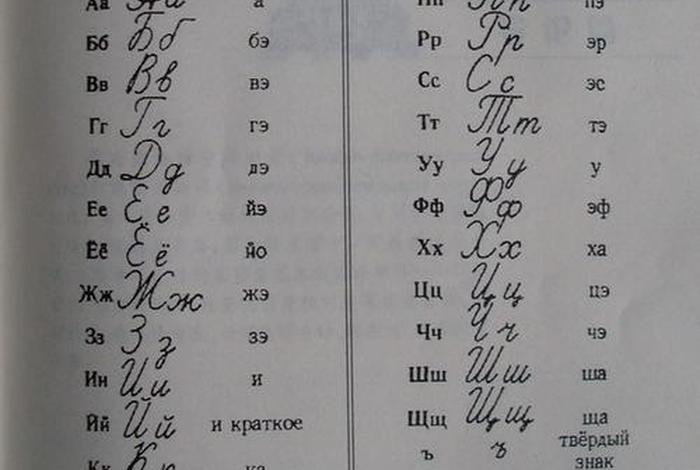 Аа Аа а
Бб Бб бэ
Вв Вв вэ
Гг Гг гэ
Дд Дд дэ
Ее Ее йэ
Ёё Ёё йо
Жж Жж жэ
Зз Зз зэ
Ии Ии и
Йй Йй и краткое
Кк Кк ка
Пп Пп пэ
Рр Рр эр
Сс Сс эс
Тт Тт тэ
Уу Уу у
Фф Фф эф
Хх Хх ха
Цц Цц цэ
Чч Чч чэ
Шш Шш ша
Щщ Щщ ща
ъ ъ твёрдый
знак